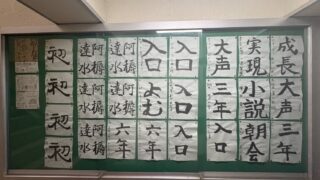 成長
大声
三年
実現
小説
朝会
大声
三年
入口
入口
入口
入口
入口
よむ
六年
阿耨
達水
阿耨
達水
六年
阿耨
達水
阿耨
達水
阿耨
達水
初
初
初
初